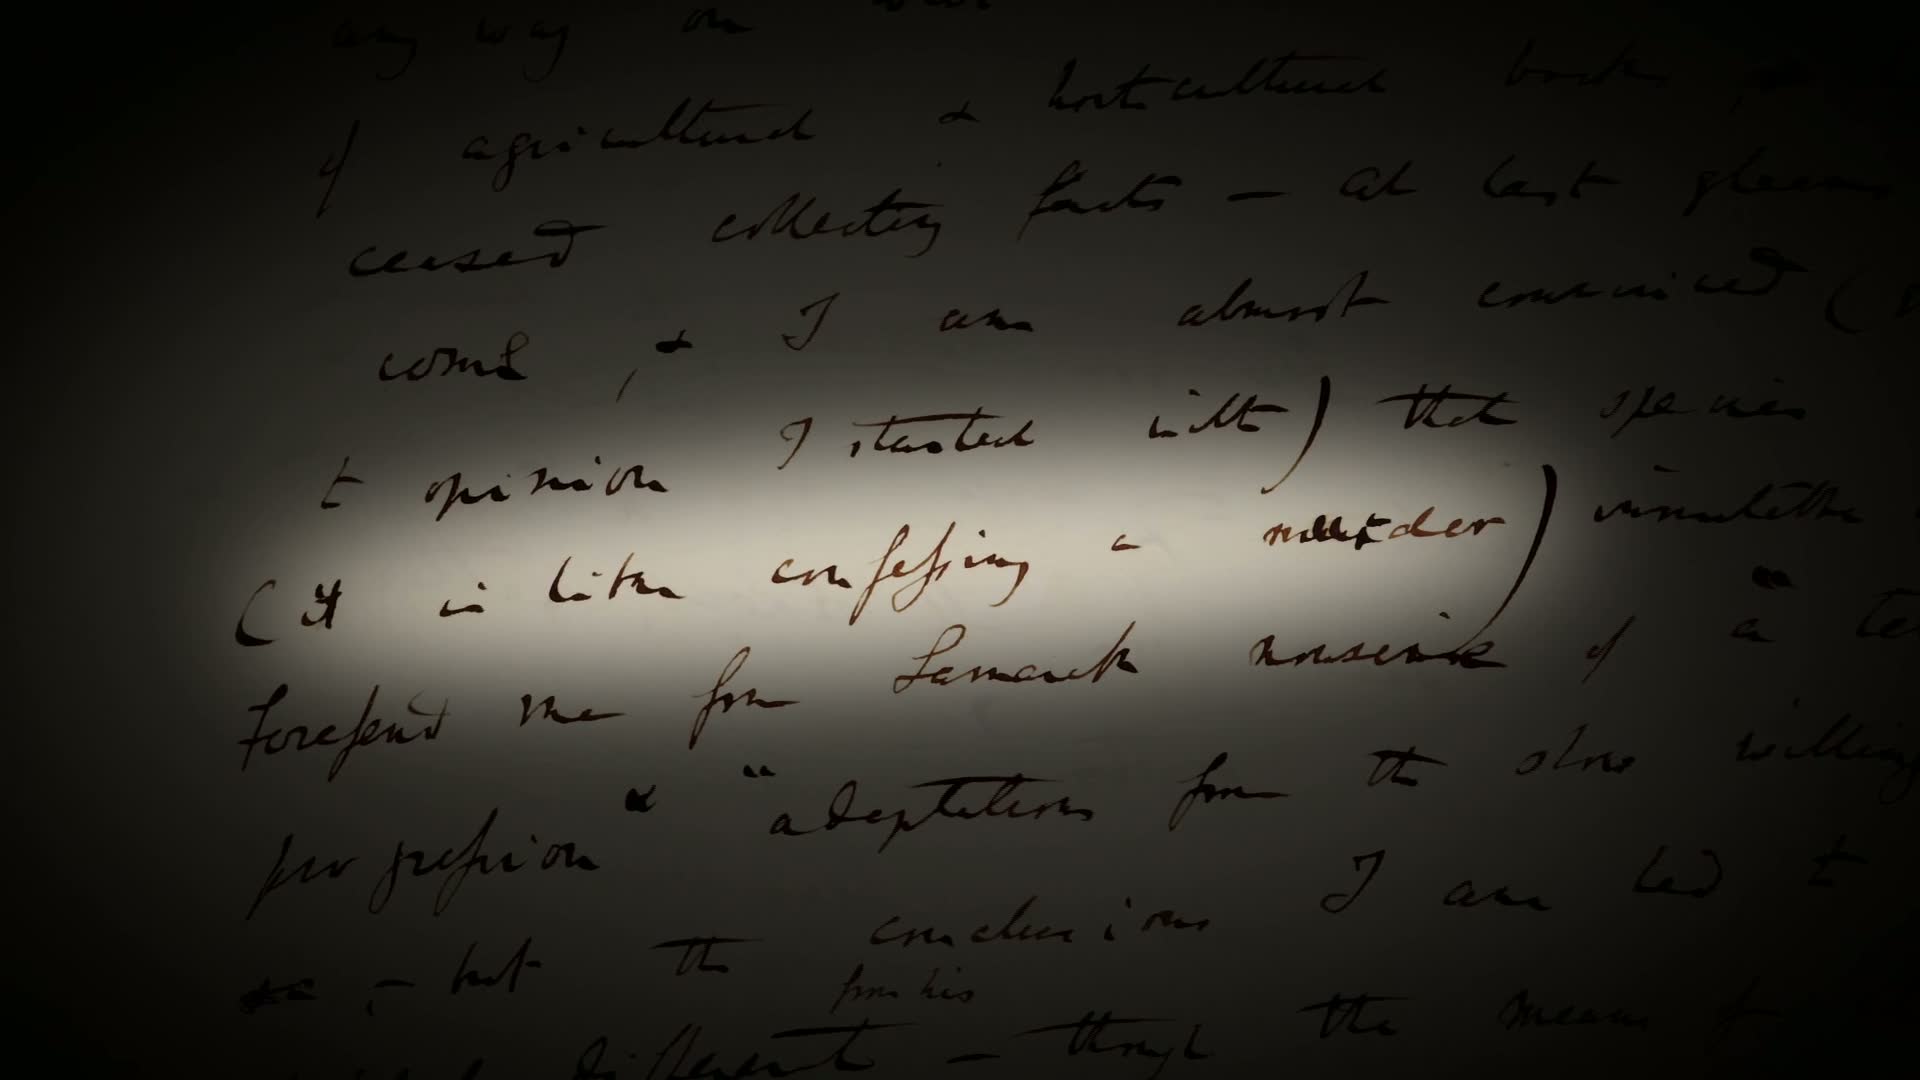 any way on
of agricultural & horticultural books, &
ceased collecting facts — At last gleams
come, & I am almost convinced (
t opinion I started with) that species
(it is like confessing a murder) immutable
forefend me from Lamarck nonsense of a "te
progression" "adaptations from the slow willing
&c, — but the conclusions I am led to
from his
different — though the means of